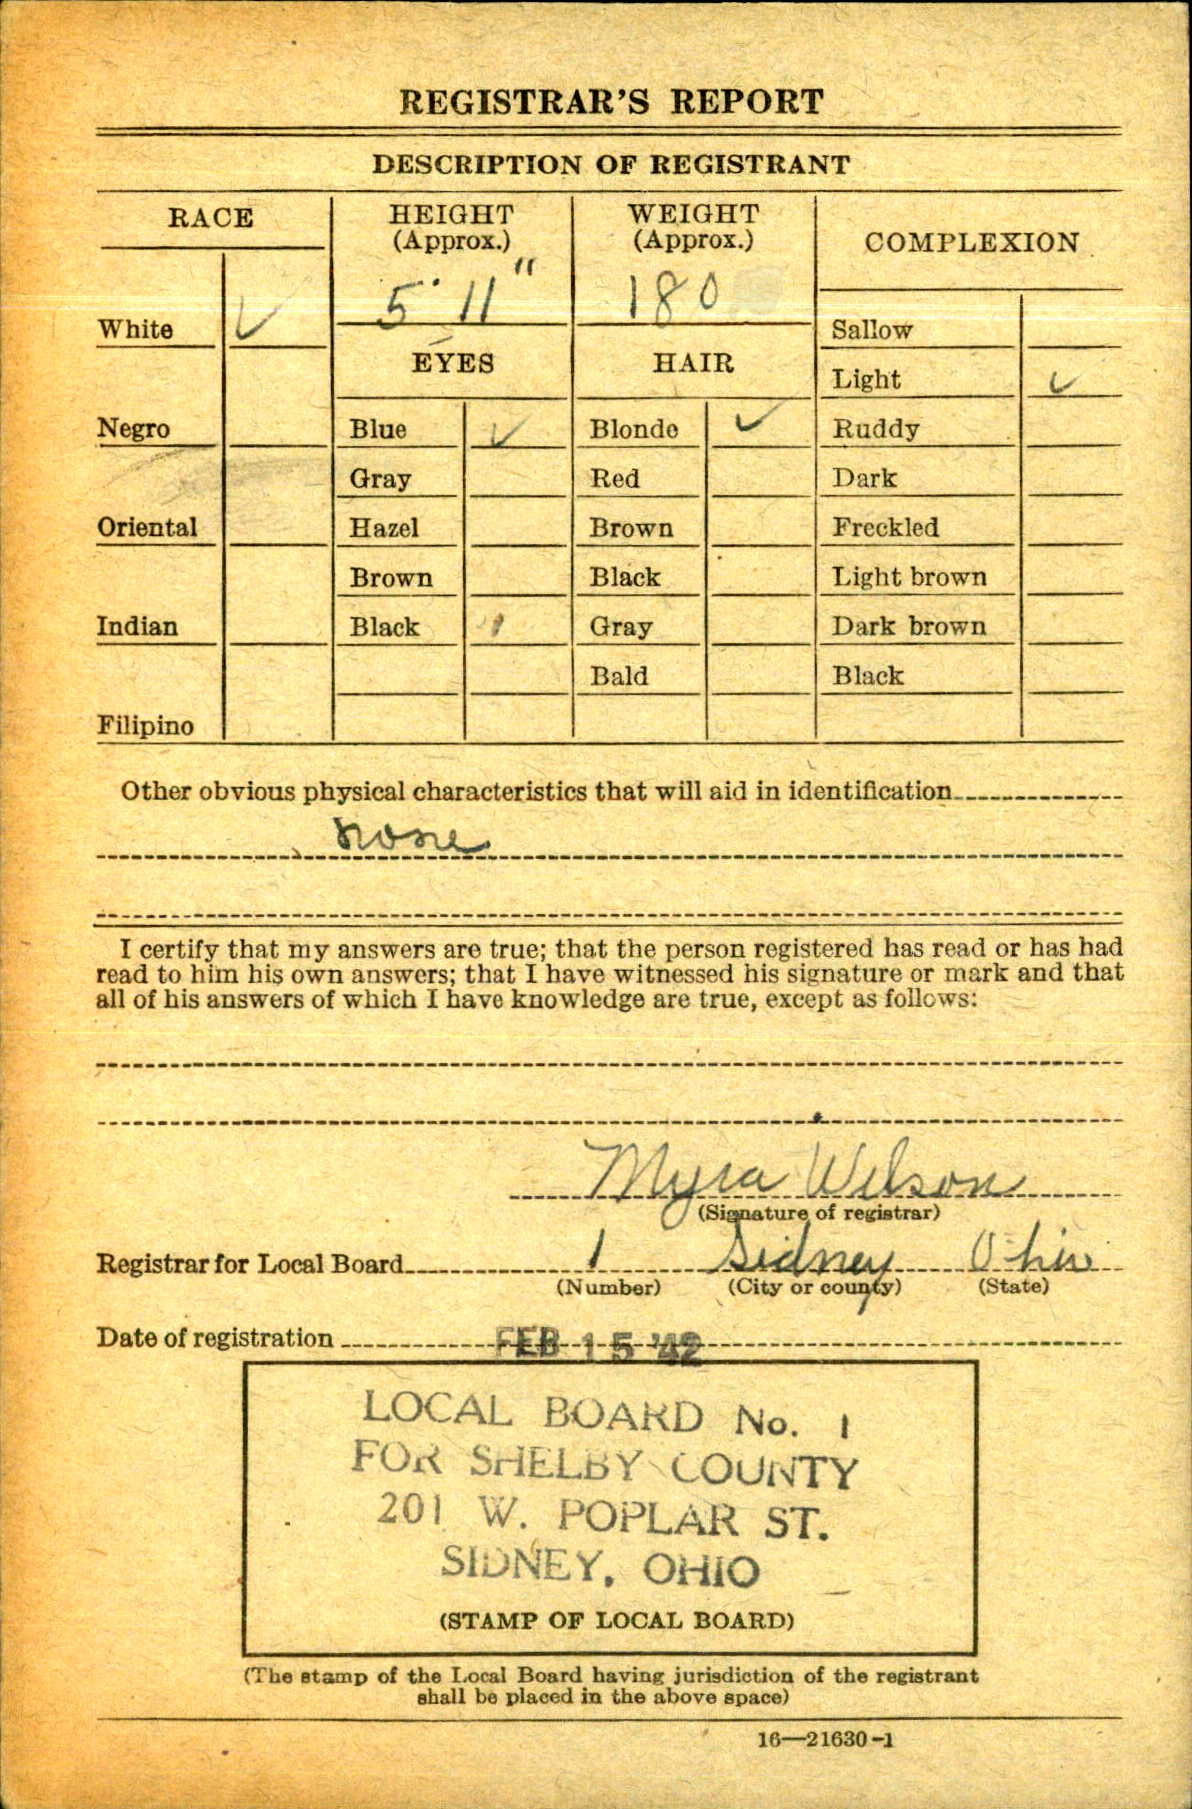 REGISTRAR'S REPORT
DESCRIPTION OF REGISTRANT
RACE
HEIGHT
(Approx.)
WEIGHT
(Approx.)
COMPLEXION
5' 11"
180
White ✓
Sallow
EYES
HAIR
Light ✓
Negro
Blue ✓
Blonde ✓
Ruddy
Gray
Red
Dark
Oriental
Hazel
Brown
Freckled
Brown
Black
Light brown
Indian
Black
Gray
Dark brown
Bald
Black
Filipino
Other obvious physical characteristics that will aid in identification
none
I certify that my answers are true; that the person registered has read or has had
read to him his own answers; that I have witnessed his signature or mark and that
all of his answers of which I have knowledge are true, except as follows:
Myra Wilson
(Signature of registrar)
Registrar for Local Board 1 Sidney Ohio
(Number) (City or county) (State)
Date of registration FEB 15 '42
LOCAL BOARD No. 1
FOR SHELBY COUNTY
201 W. POPLAR ST.
SIDNEY, OHIO
(STAMP OF LOCAL BOARD)
(The stamp of the Local Board having jurisdiction of the registrant
shall be placed in the above space)
16—21630-1